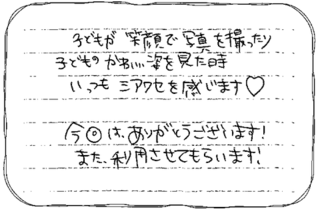 子どもが 笑顔で写真を撮ったり
子どものかわいい姿を見た時
いつも ミアワセを感じます♡
今回は、ありがとうございます!
また、利用させてもらいます!